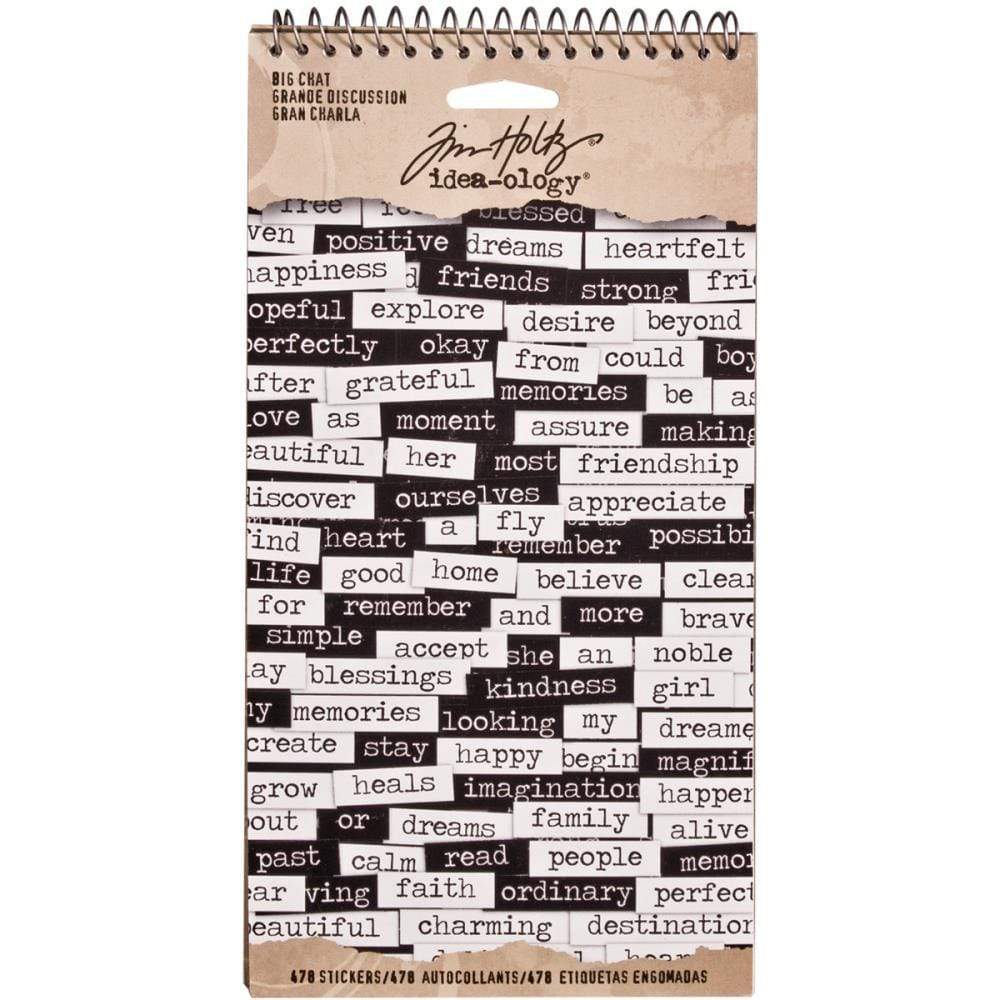 BIG CHAT
GRANDE DISCUSSION
GRAN CHARLA
Tim Holtz®
idea-ology®
free blessed
ven positive dreams heartfelt
appiness friends strong fri
opeful explore desire beyond
erfectly okay from could boy
fter grateful memories be as
ove as moment assure making
eautiful her most friendship
iscover ourselves appreciate
find heart a fly remember possibi
life good home believe clear
for remember and more brave
simple accept she an noble
ay blessings kindness girl
y memories looking my dreame
create stay happy begin magnif
grow heals imagination happen
out or dreams family alive
past calm read people memor
ear ving faith ordinary perfect
eautiful charming destination
478 STICKERS/478 AUTOCOLLANTS/478 ETIQUETAS ENGOMADAS